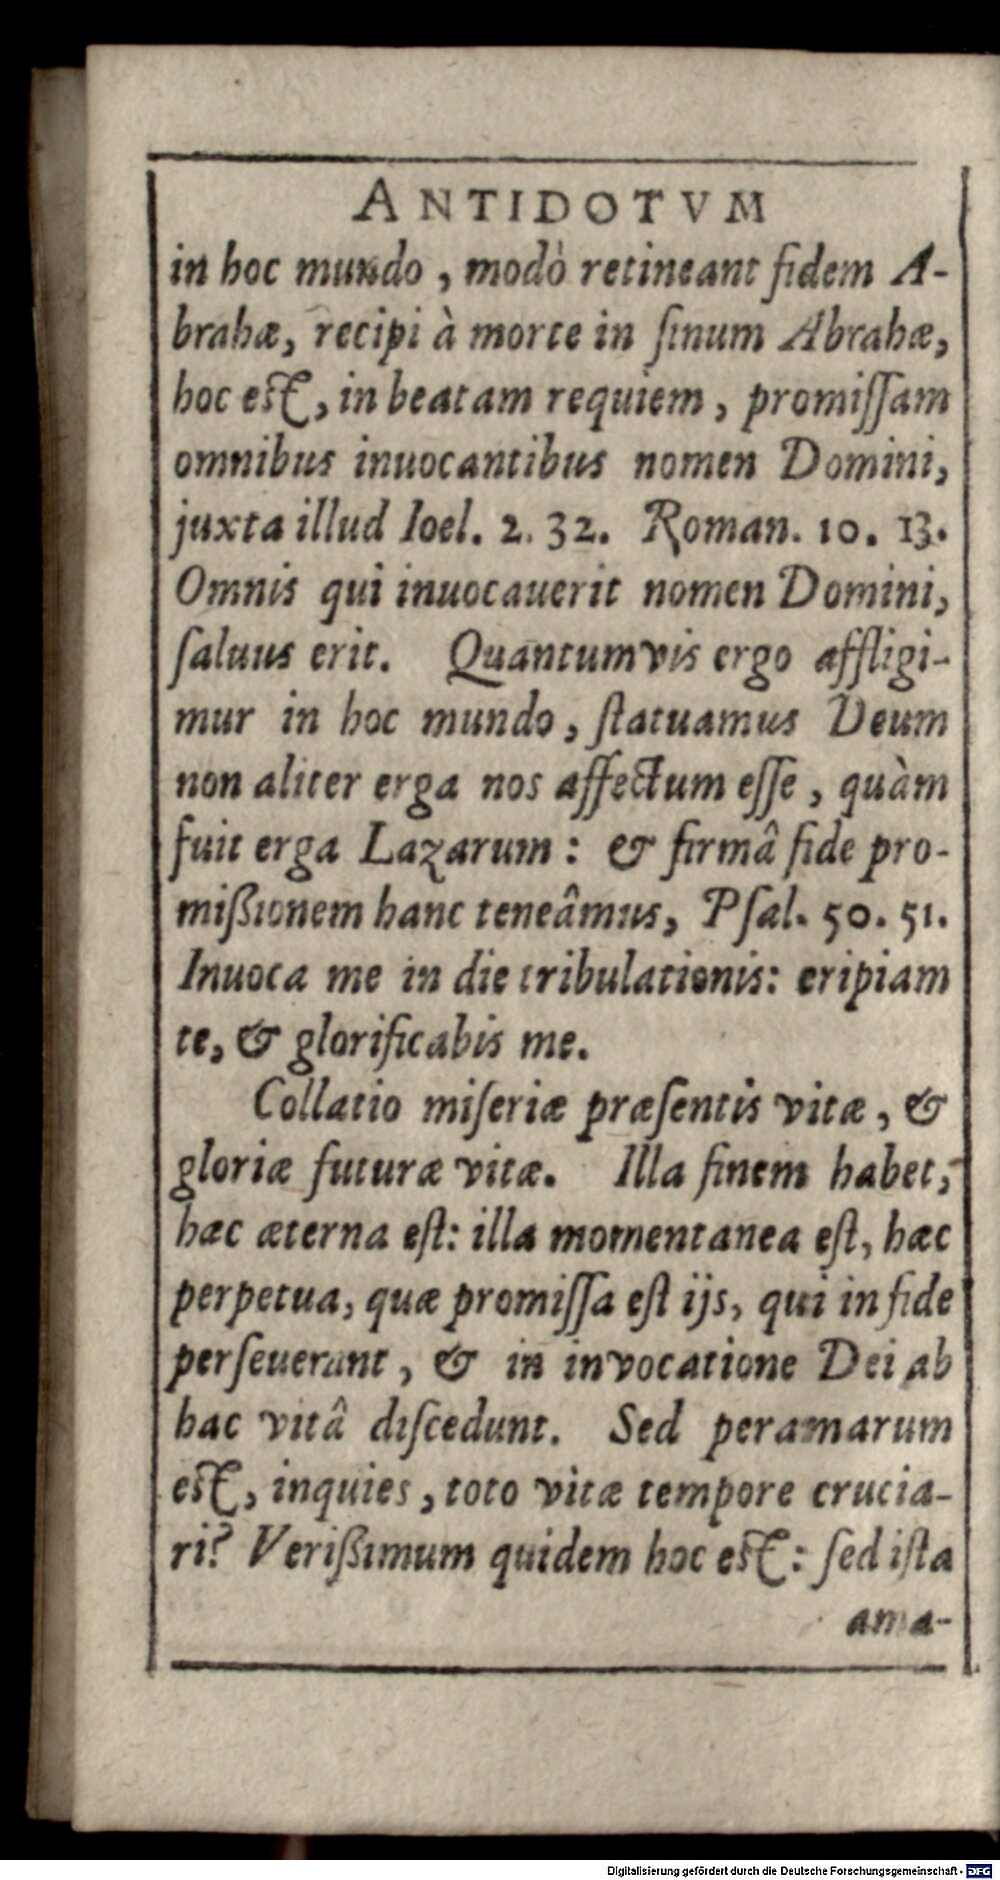 ANTIDOTVM
in hoc mundo, modò retineant fidem A-
brahæ, recipi à morte in ſinum Abrahæ,
hoc eſt, in beatam requiem, promiſſam
omnibus inuocantibus nomen Domini,
juxta illud Ioel. 2. 32. Roman. 10. 13.
Omnis qui inuocauerit nomen Domini,
ſaluus erit. Quantumvis ergo affligi-
mur in hoc mundo, ſtatuamus Deum
non aliter erga nos affectum eſſe, quàm
fuit erga Lazarum: & firmâ fide pro-
mißionem hanc teneâmus, Pſal. 50. 51.
Inuoca me in die tribulationis: eripiam
te, & glorificabis me.
Collatio miſeriæ præſentis vitæ, &
gloriæ futuræ vitæ. Illa finem habet,
hæc æterna eſt: illa momentanea eſt, hæc
perpetua, quæ promiſſa eſt ijs, qui in fide
perſeuerant, & in invocatione Dei ab
hac vitâ diſcedunt. Sed peramarum
eſt, inquies, toto vitæ tempore crucia-
ri? Verißimum quidem hoc eſt: ſed iſta
ama-
Digitalisierung gefördert durch die Deutsche Forschungsgemeinschaft - DFG